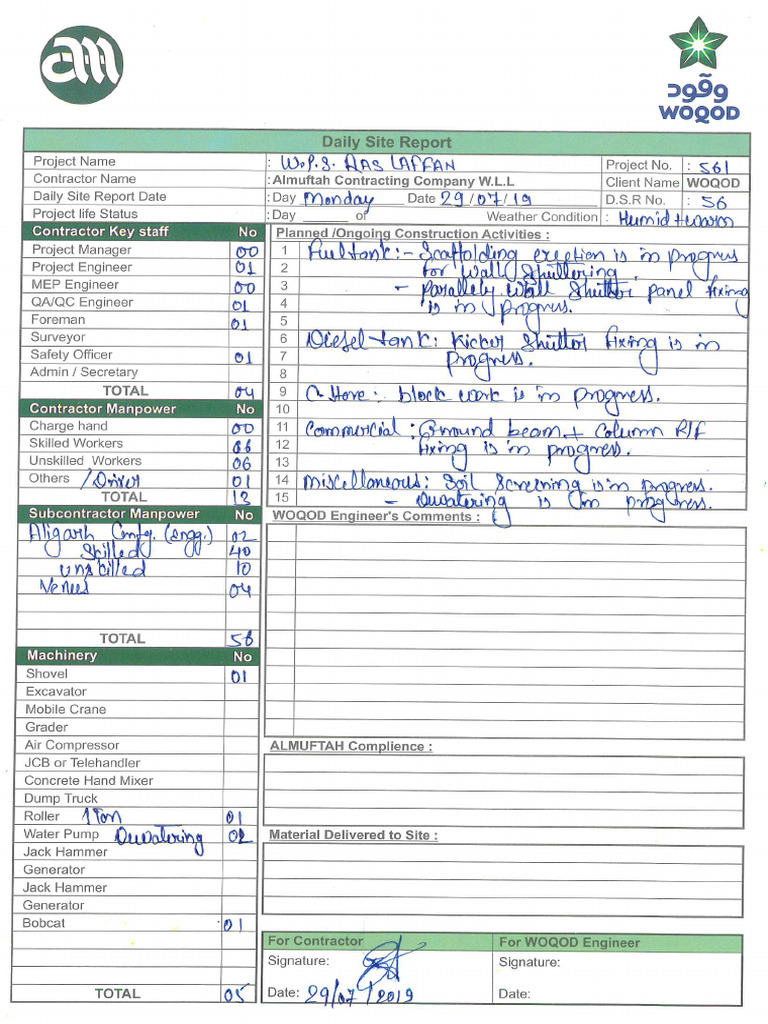 am
وقود
WOQOD
Daily Site Report
Project Name : W.P.S. RAS LAFFAN Project No. : 561
Contractor Name :Almuftah Contracting Company W.L.L Client Name WOQOD
Daily Site Report Date :Day Monday Date 29/07/19 D.S.R No. : 56
Project life Status :Day of Weather Condition : Humid + warm
Contractor Key staff No
Project Manager 00
Project Engineer 01
MEP Engineer 00
QA/QC Engineer 01
Foreman 01
Surveyor
Safety Officer 01
Admin / Secretary
TOTAL 04
Contractor Manpower No
Charge hand 00
Skilled Workers 06
Unskilled Workers 06
Others /Driver 01
TOTAL 13
Subcontractor Manpower No
Aligarh (engg.) 02
Skilled 40
unskilled 10
Venus 04
TOTAL 56
Machinery No
Shovel 01
Excavator
Mobile Crane
Grader
Air Compressor
JCB or Telehandler
Concrete Hand Mixer
Dump Truck
Roller 1Ton 01
Water Pump Dewatering 02
Jack Hammer
Generator
Jack Hammer
Generator
Bobcat 01
TOTAL 05
Planned /Ongoing Construction Activities :
1 Fueltank:- Scaffolding erection is in progress
2 for wall shuttering.
3 - Parallely wall shutter panel fixing
4 is in progress.
5
6 Diesel tank: Kicker Shutter fixing is in
7 progress.
8
9 C-Store: block work is in progress.
10
11 Commercial: Ground beam + Column R/f
12 fixing is in progress.
13
14 Miscellaneous: Soil Screening is in progress.
15 - Dewatering is in progress.
WOQOD Engineer's Comments :
ALMUFTAH Complience :
Material Delivered to Site :
For Contractor For WOQOD Engineer
Signature: Signature:
Date: 29/07/2019 Date: